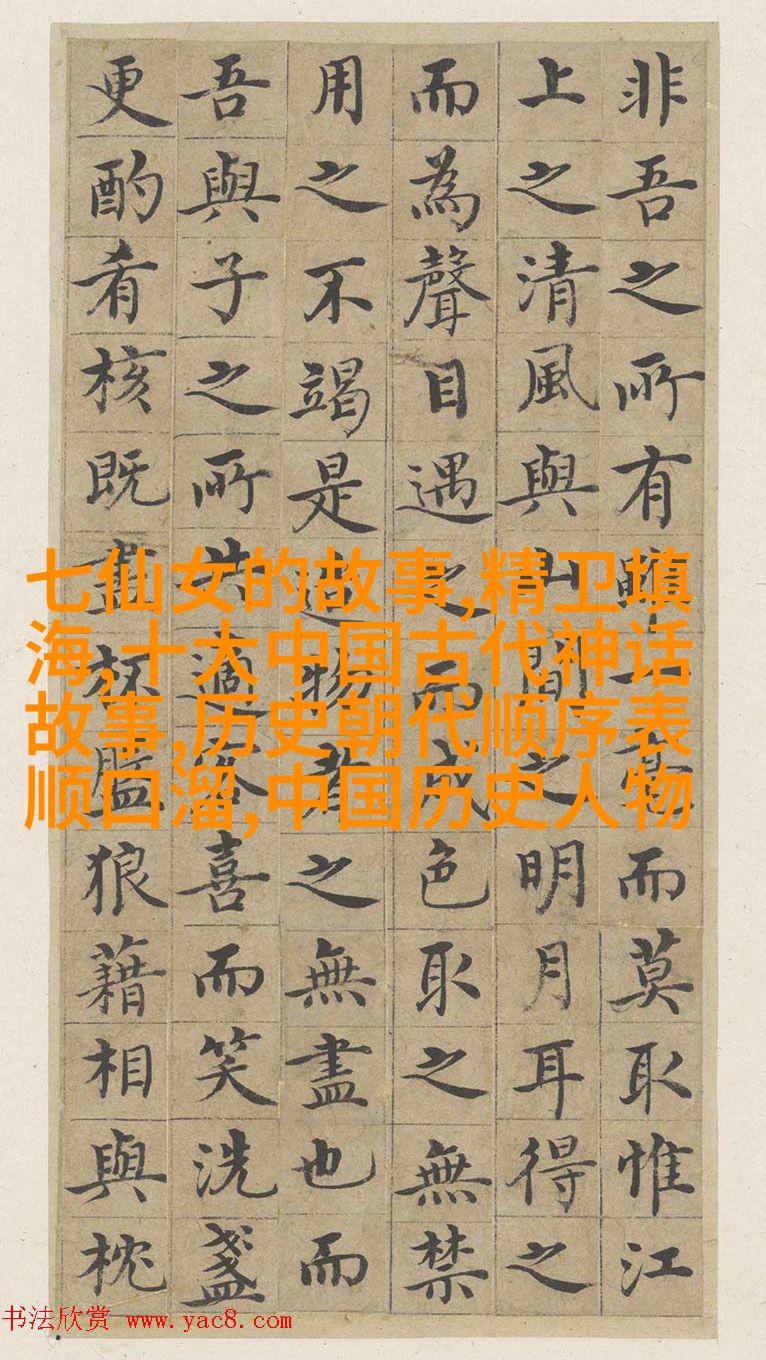 非吾之所有雖一毫而莫取惟江
上之清風與山間之明月耳得之
而為聲目遇之而成色取之無禁
用之不竭是造物者之無盡也而
吾與子之所共適客喜而笑洗盞
更酌肴核既盡杯盤狼藉相與枕
七仙女的故事,精卫填
海,十大中国古代神话
故事,历史朝代顺序表
顺口溜,中国历史人物
书法欣赏 www.yac8.com